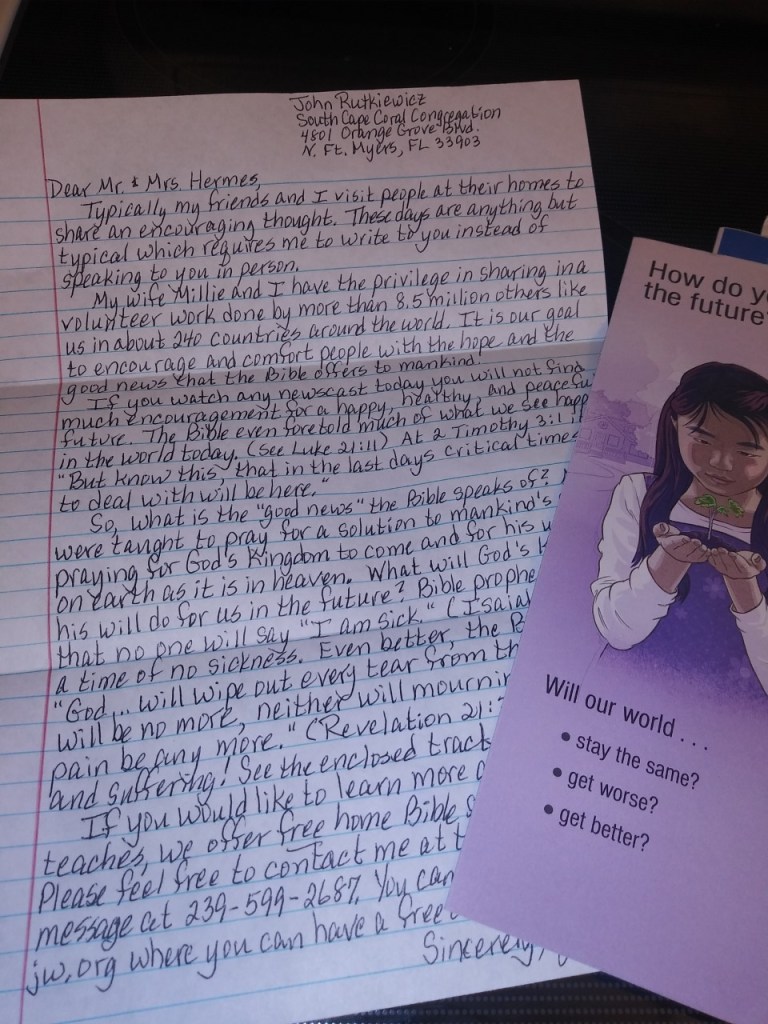 John Rutkiewicz
South Cape Coral Congregation
4801 Orange Grove Blvd.
N. Ft. Myers, FL 33903
Dear Mr. & Mrs. Hermes,
Typically my friends and I visit people at their homes to
share an encouraging thought. These days are anything but
typical which requires me to write to you instead of
speaking to you in person.
My wife Millie and I have the privilege in sharing in a
volunteer work done by more than 8.5 million others like
us in about 240 countries around the world. It is our goal
to encourage and comfort people with the hope and the
good news that the Bible offers to mankind.
If you watch any newscast today you will not find
much encouragement for a happy, healthy, and peacefu
future. The Bible even foretold much of what we see happ
in the world today. (See Luke 21:11) At 2 Timothy 3:1 i
"But know this, that in the last days critical times
to deal with will be here."
So, what is the "good news" the Bible speaks of?
were taught to pray for a solution to mankind's
praying for God's Kingdom to come and for his w
on earth as it is in heaven. What will God's K
his will do for us in the future? Bible prophe
that no one will say "I am sick." (Isaia
a time of no sickness. Even better, the B
"God... will wipe out every tear from th
will be no more, neither will mournin
pain be any more." (Revelation 21:
and suffering! See the enclosed tract
If you would like to learn more
teaches, we offer free home Bible s
Please feel free to contact me at t
message at 239-599-2687. You can
jw.org where you can have a free
Sincerely,
How do yo
the future?
Will our world . . .
• stay the same?
• get worse?
• get better?